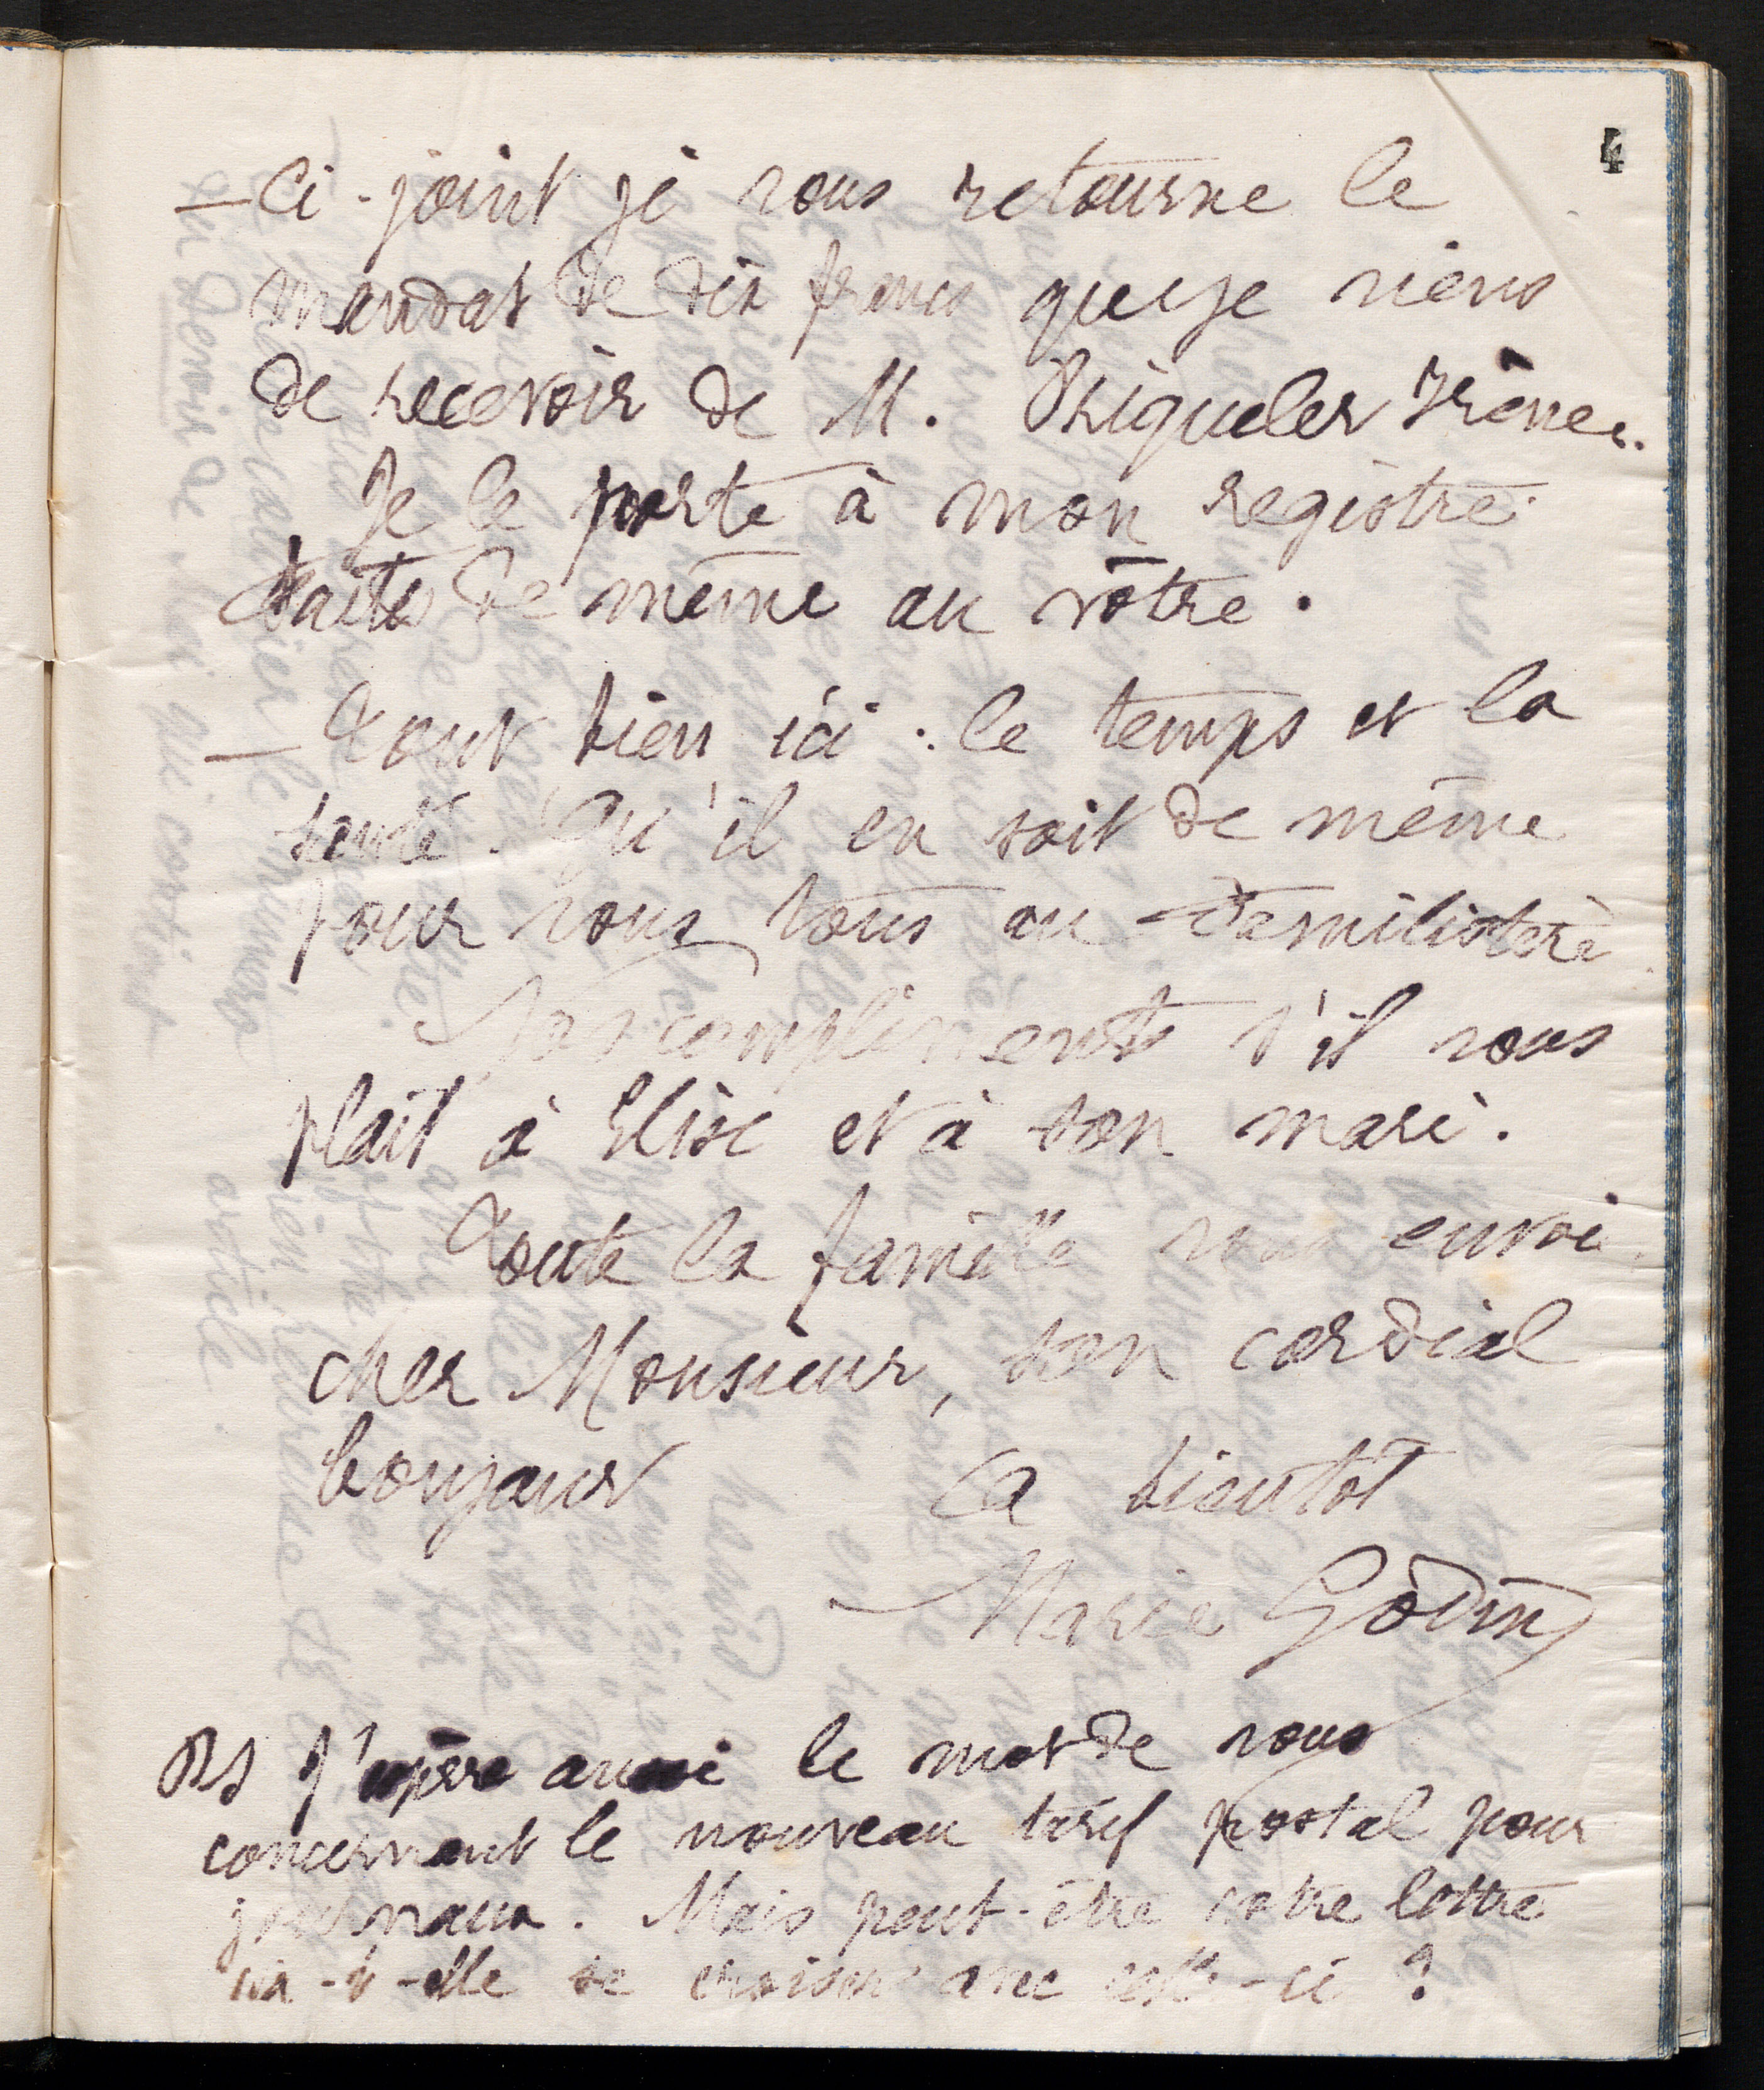 4
— Ci-joint je vous retourne le
mandat de dix francs que je viens
de recevoir de M.
Je le porte à mon registre
faites de même au vôtre.
— Tout bien ici : le temps et la
santé. Qu'il en soit de même
pour vous tous au Familistère
Nos compliments s'il vous
plaît à Elise et à son mari.
Toute la famille vous envoie
cher Monsieur, son cordial
bonjour
à bientôt
Marie Godin
PS J'espère aussi le mot de vous
concernant le nouveau tarif postal pour
journaux. Mais peut-être votre lettre
va-t-elle se croiser avec celle-ci ?